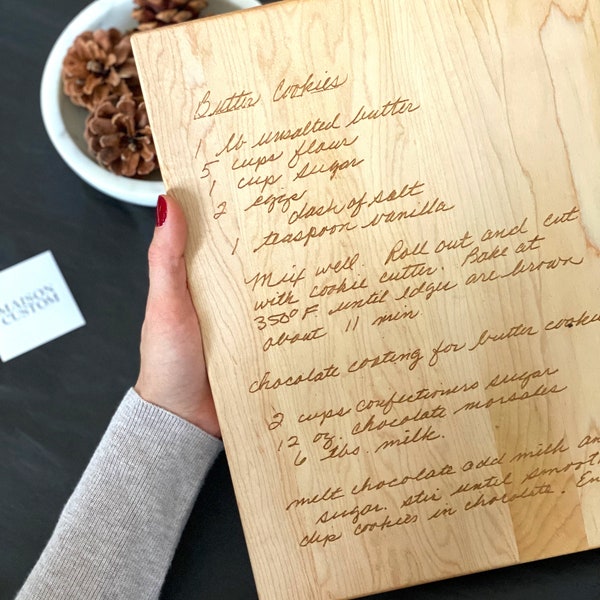 Butter Cookies
1 lb unsalted butter
5 cups flour
1 cup sugar
2 eggs
dash of salt
1 teaspoon vanilla
Mix well. Roll out and cut
with cookie cutter. Bake at
350° F until edges are brown
about 11 min.
chocolate coating for butter cookies
2 cups confectioners sugar
12 oz. chocolate morsales
6 tbs. milk.
melt chocolate add milk an
sugar. stir until smooth
dip cookies in chocolate. En
MAISON
CUSTOM